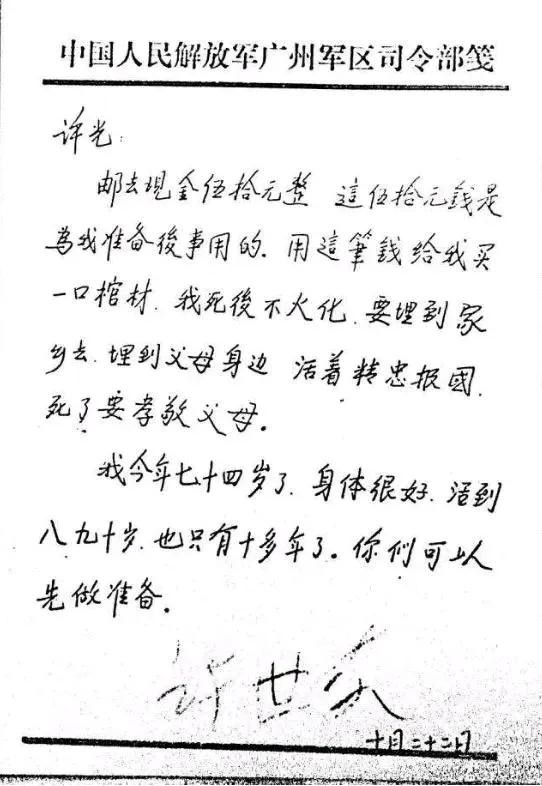 中国人民解放军广州军区司令部笺
许光:
邮去现金伍拾元整 這伍拾元錢是
為我准备後事用的. 用這筆錢给我买
一口棺材. 我死後不火化. 要埋到家
乡去. 埋到父母身边 活着精忠报國.
死了要孝敬父母。
我今年七十四岁了. 身体很好. 活到
八九十岁. 也只有十多年了。你们可以
先做准备。
许世友
十月二十二日